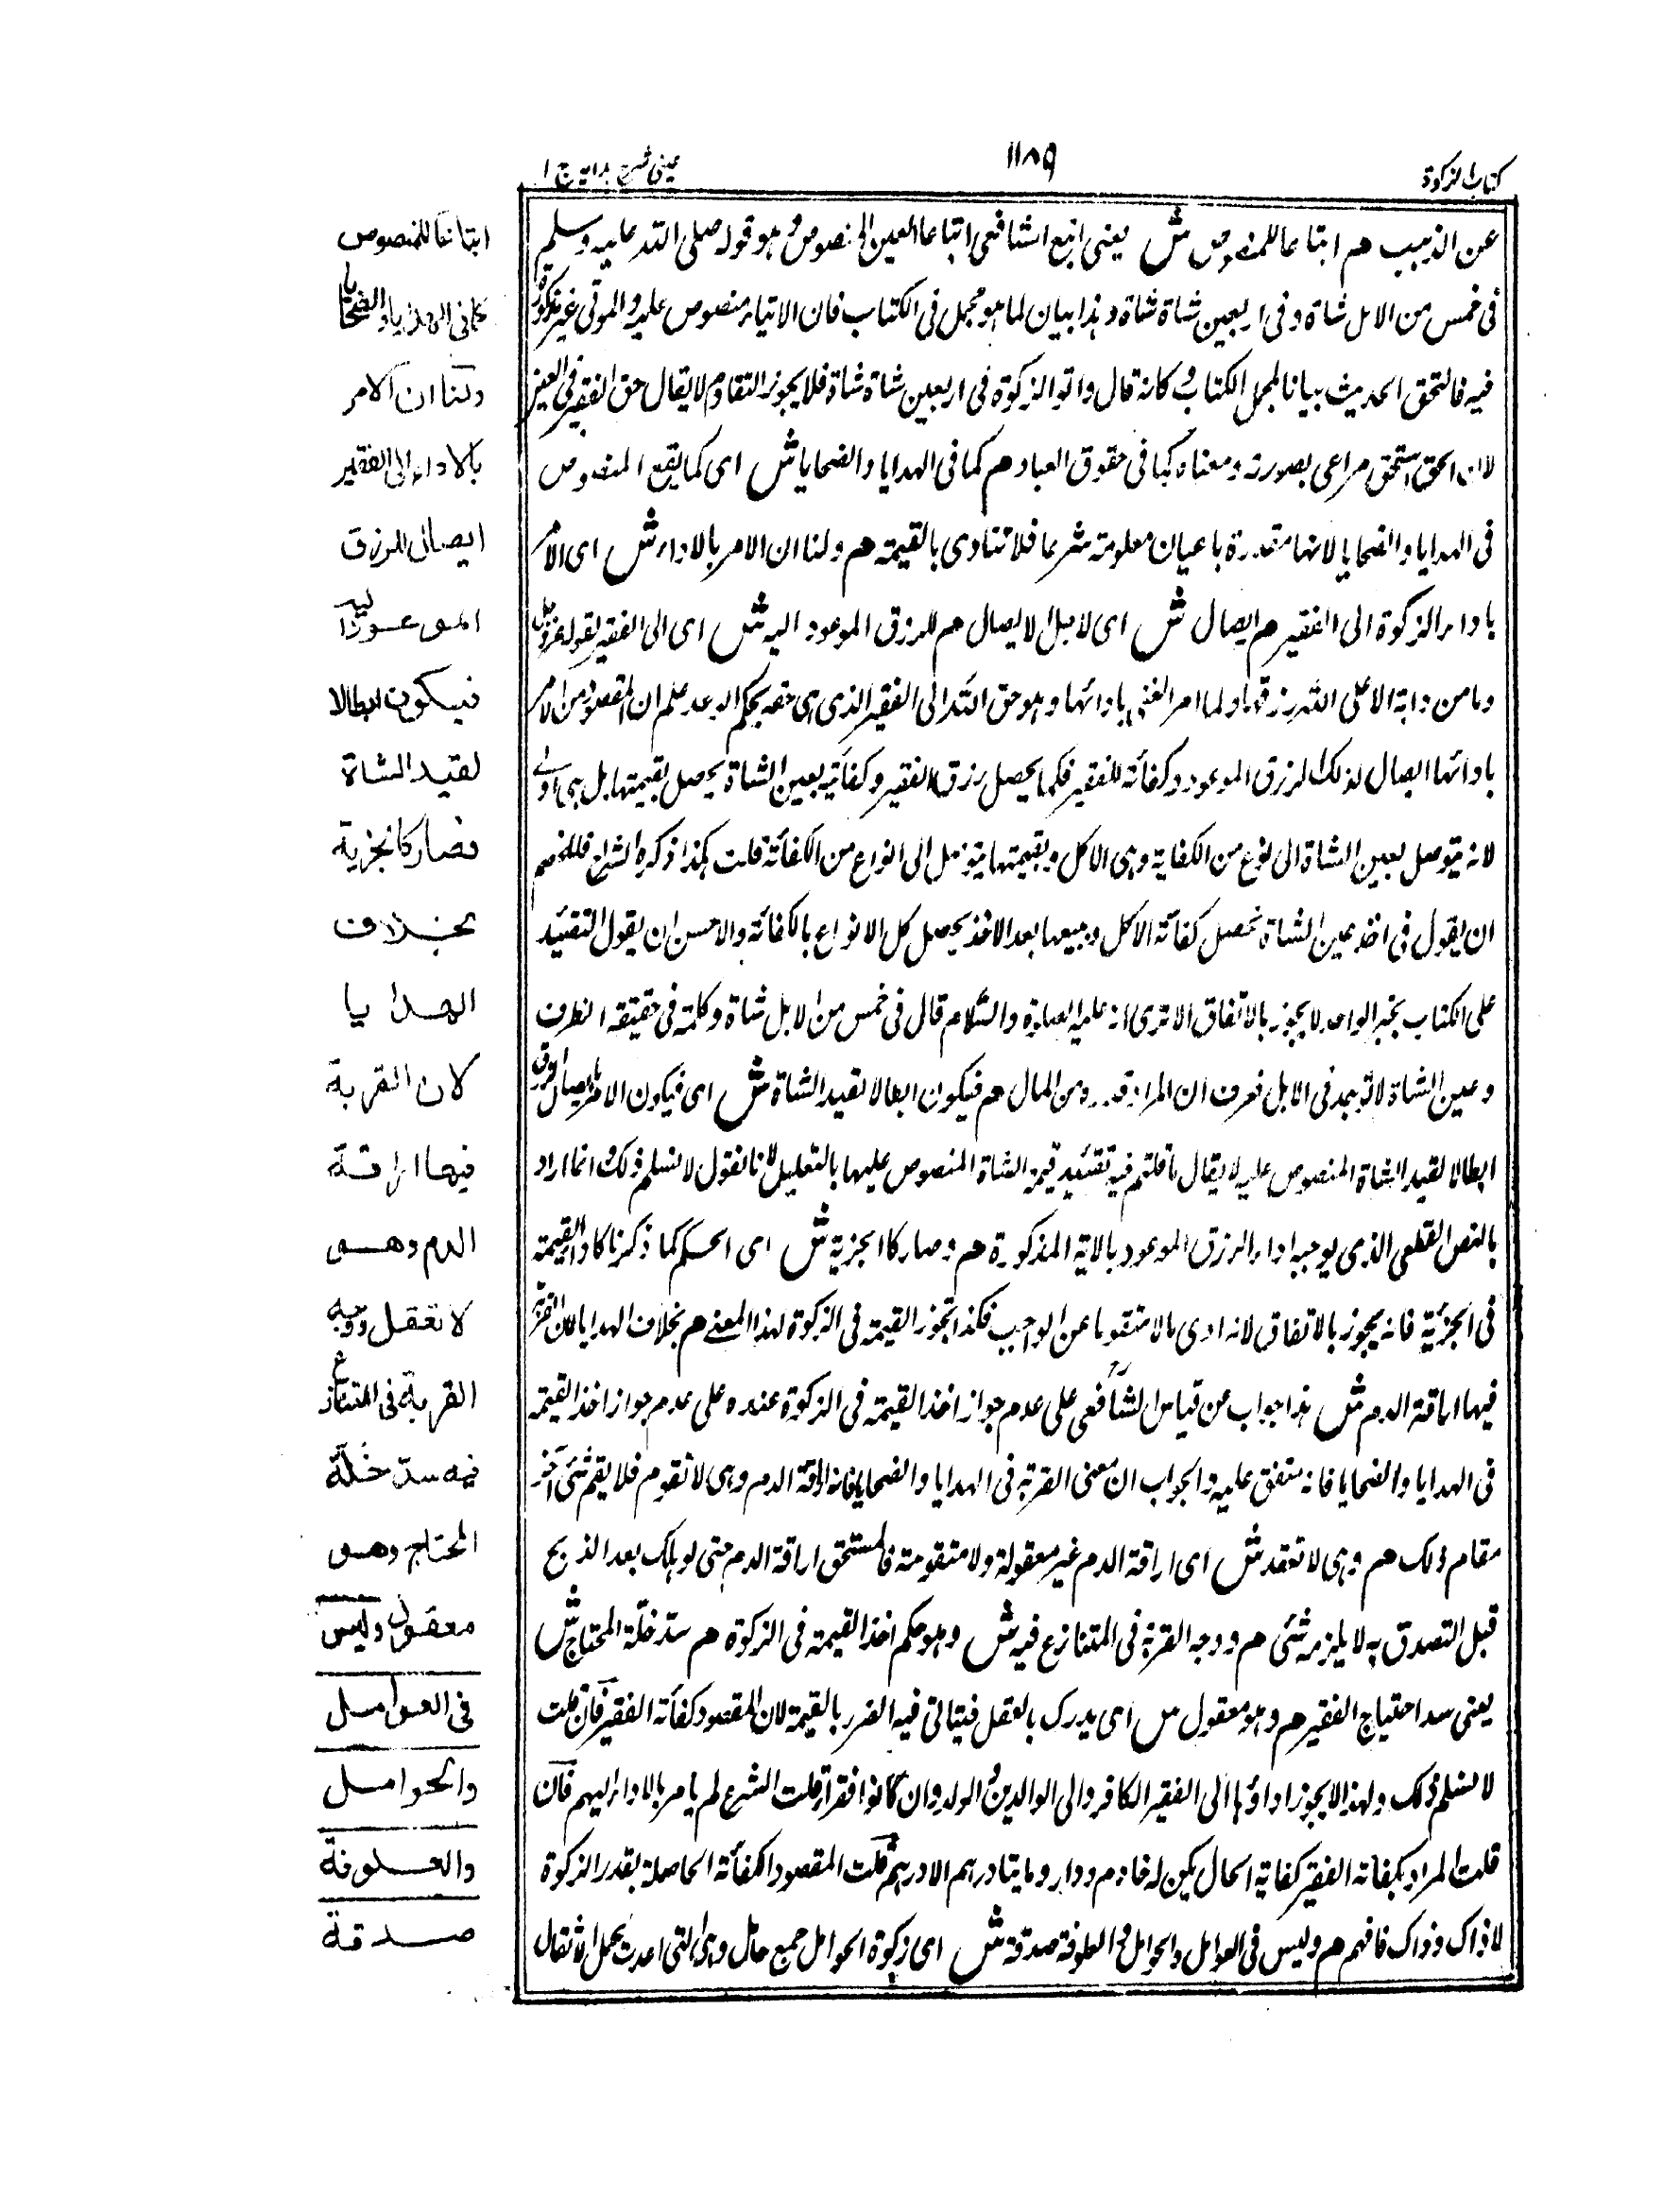 كتاب الزكوة
١١٨٩
عینی شرح هدایة ج ١
عن الذهب هم اتباعا للمنصوص ش يعنى اتبع الشافعى اتباعا لعين المنصوص وهو قوله صلى الله عليه وسلم
فى خمس من الابل شاة وفى اربعين شاة شاة وهذا بيان لما هو مجمل فى الكتاب فان الايتاء منصوص عليه والموتى غير مذكور
فيه فالتحق الحديث بيانا لمجمل الكتاب كانه قال واتوا الزكوة فى اربعين شاة شاة فلا يجوز لا يقال حق الفقير فى العين
لان الحق المستحق مراعى بصورته ومعناه كما فى حقوق العباد هم كما فى الهدايا والضحايا ش اى كما يقع المنصوص
فى الهدايا والضحايا لانها مقدرة باعيان معلومة شرعا فلا تتادى بالقيمة هم ولنا ان الامر بالاداء ش اى الامر
باداء الزكوة الى الفقير هم ايصال ش اى لاجل الايصال هم للرزق الموعود اليه ش اى الى الفقير لقوله عز وجل
وما من دابة الا على الله رزقها ولما امر الغنى بادائها وهو حق الله الى الفقير الذى هى حقه بحكم الوعد علم ان المقصود من الامر
بادائها ايصال لذلك الرزق الموعود وكفاية للفقير فكما يحصل رزق الفقير وكفايته بعين الشاة يحصل بقيمتها بل هى اولى
لانه يتوصل بعين الشاة الى نوع من الكفاية وهى الاكل وبقيمتها يتوصل الى انواع من الكفاية قلت هكذا ذكره الشراح فللخصم
ان يقول فى اخذ عين الشاة تحصل كفاية الاكل وبيعها بعد الاخذ يحصل كل الانواع بالكفاية والاحسن ان يقول التقييد
على الكتاب بخبر الواحد لا يجوز بالاتفاق الا ترى انه عليه الصلوة والسلام قال فى خمس من الابل شاة وكلمة فى حقيقة الظرف
وعين الشاة لا توجد فى الابل فعرف ان المراد قدرها من المال هم فيكون ابطالا لقيد الشاة ش اى فيكون الامر بايصال الرزق
ابطالا لقيد الشاة المنصوص عليه لا يقال ما قلتم فيه تقييد قيمة الشاة المنصوص عليها بالتعليل لانا نقول لا نسلم ذلك وانما اراد
بالنص القطعى الذى يوجبه اداء الرزق الموعود بالاية المذكورة هم وصار كالجزية ش اى الحكم كما ذكرنا كاداء القيمة
فى الجزية فانه يجوز بالاتفاق لانه ادى مالا متقوما عن الواجب فكذا تجوز القيمة فى الزكوة لهذا المعنى هم بخلاف الهدايا لان القربة
فيها اراقة الدم ش هذا جواب عن قياس الشافعى على عدم جواز اخذ القيمة فى الزكوة عنده على عدم جواز اخذ القيمة
فى الهدايا والضحايا فانه متفق عليه والجواب ان معنى القربة فى الهدايا والضحايا فانه اراقة الدم وهى لا تقوم فلا يقم شئ آخر
مقام ذلك هم وهى لا تعقد ش اى اراقة الدم غير معقولة ولا متقومة فالمستحق اراقة الدم حتى لو هلك بعد الذبح
قبل التصدق به لا يلزمه شئ هم ووجه القربة فى المتنازع فيه ش وهو حكم اخذ القيمة فى الزكوة هم سد خلة المحتاج ش
يعنى سد احتياج الفقير هم وهو معقول ش اى يدرك بالعقل بالقيمة لان المقصود كفاية الفقير فان قلت
لا نسلم ذلك ولهذا لا يجوز اداؤها الى الفقير الكافر والى الوالدين والولد وان كانوا فقراء قلت الشرع لم يامر بالاداء اليهم فان
قلت المراد بكفاية الفقير كفاية الحال يكون له خادم ودار قلت المقصود الكفاية الحاصلة بقدر الزكوة
لا ذاك وذاك فافهم هم وليس فى العوامل والحوامل والعلوفة صدقة ش اى زكوة الحوامل جمع حامل وهى التى اعدت لحمل الاثقال
اتباعا للمنصوص
كما فى الهدايا والضحايا
ولنا ان الامر
بالاداء الى الفقير
ايصال للرزق
الموعود اليه
فيكون ابطالا
لقيد الشاة
فصار كالجزية
بخلاف
الهدايا
لان القربة
فيها اراقة
الدم وهى
لا تعقل ووجه
القربة فى المتنازع
فيه سد خلة
المحتاج وهو
معقول وليس
فى العوامل
والحوامل
والعلوفة
صدقة